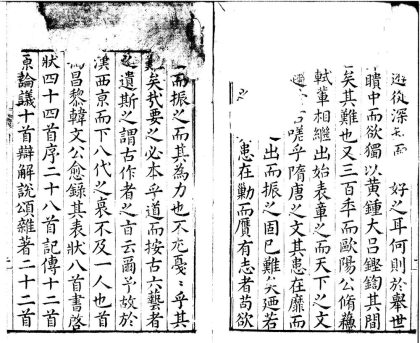 遊從深 好之耳何則於舉世
聵中而欲獨以黃鍾大呂鏗鍧其間
矣其難也又三百年而歐陽公脩蘇
軾輩相繼出始表章之而天下之文
嗟乎隋唐之文其患在靡而
出而振之固已難矣廼若
之 患在勦而贋有志者苟欲
而振之而其為力也不尤戛戛乎其
矣哉要之必本乎道而按古六藝者
遺斯之謂古作者之旨云爾予故於
漢西京而下八代之衰不及一人也首
昌黎韓文公愈錄其表狀八首書啓
狀四十四首序二十八首記傳十二首
原論議十首辯解說頌雜著二十二首